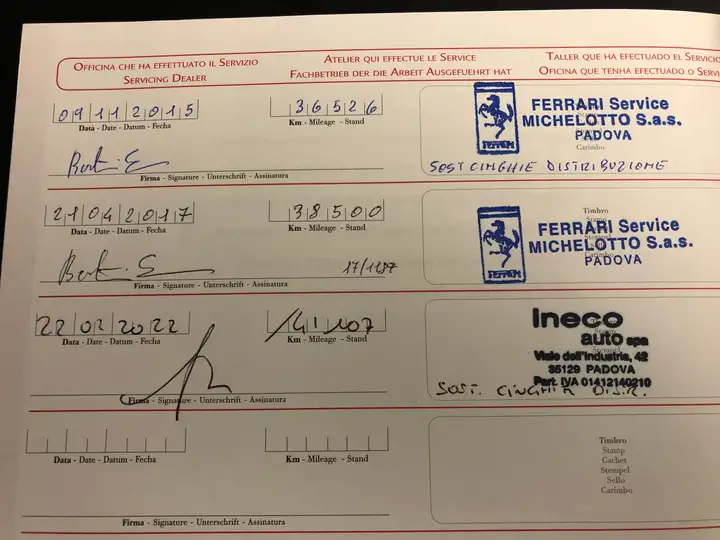 Officina che ha effettuato il Servizio
Servicing Dealer
Atelier qui effectue le Service
Fachbetrieb der die Arbeit Ausgefuehrt hat
Taller que ha efectuado el Servicio
Oficina que tenha efectuado o Servi
09112015
Data - Date - Datum - Fecha
36526
Km - Mileage - Stand
Firma - Signature - Unterschrift - Assinatura
FERRARI Service
MICHELOTTO S.a.s.
PADOVA
Carimbo
Ferrari
SOST CINGHIE DISTRIBUZIONE
21042017
Data - Date - Datum - Fecha
38500
Km - Mileage - Stand
17/1197
Firma - Signature - Unterschrift - Assinatura
Timbro
FERRARI Service
MICHELOTTO S.a.s.
PADOVA
Ferrari
22022022
Data - Date - Datum - Fecha
41107
Km - Mileage - Stand
Firma - Signature - Unterschrift - Assinatura
Ineco
auto spa
Viale dell'Industria, 42
35129 PADOVA
Part. IVA 01412140210
SOST. CINGHIA DISTR.
Data - Date - Datum - Fecha
Km - Mileage - Stand
Firma - Signature - Unterschrift - Assinatura
Timbro
Stamp
Cachet
Stempel
Sello
Carimbo